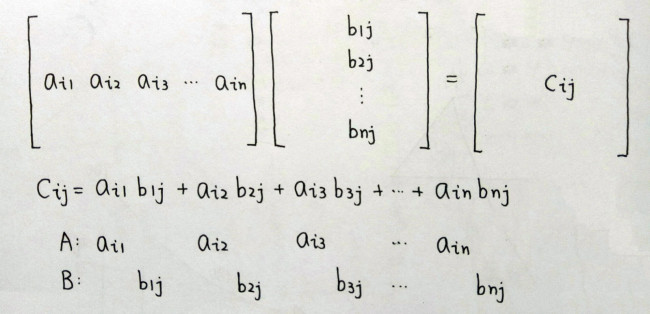 [ ai1 ai2 ai3 ... ain ] [ b1j b2j ⋮ bnj ] = [ Cij ]
Cij = ai1 b1j + ai2 b2j + ai3 b3j + ... + ain bnj
A: ai1 ai2 ai3 ... ain
B: b1j b2j b3j ... bnj